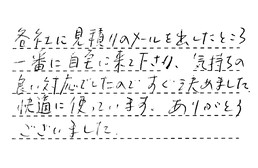 各社に見積りのメールを出したところ
一番に自宅に来て下さり、気持ちの
良い対応でしたのですぐ決めました。
快適に使っています。ありがとう
ございました。